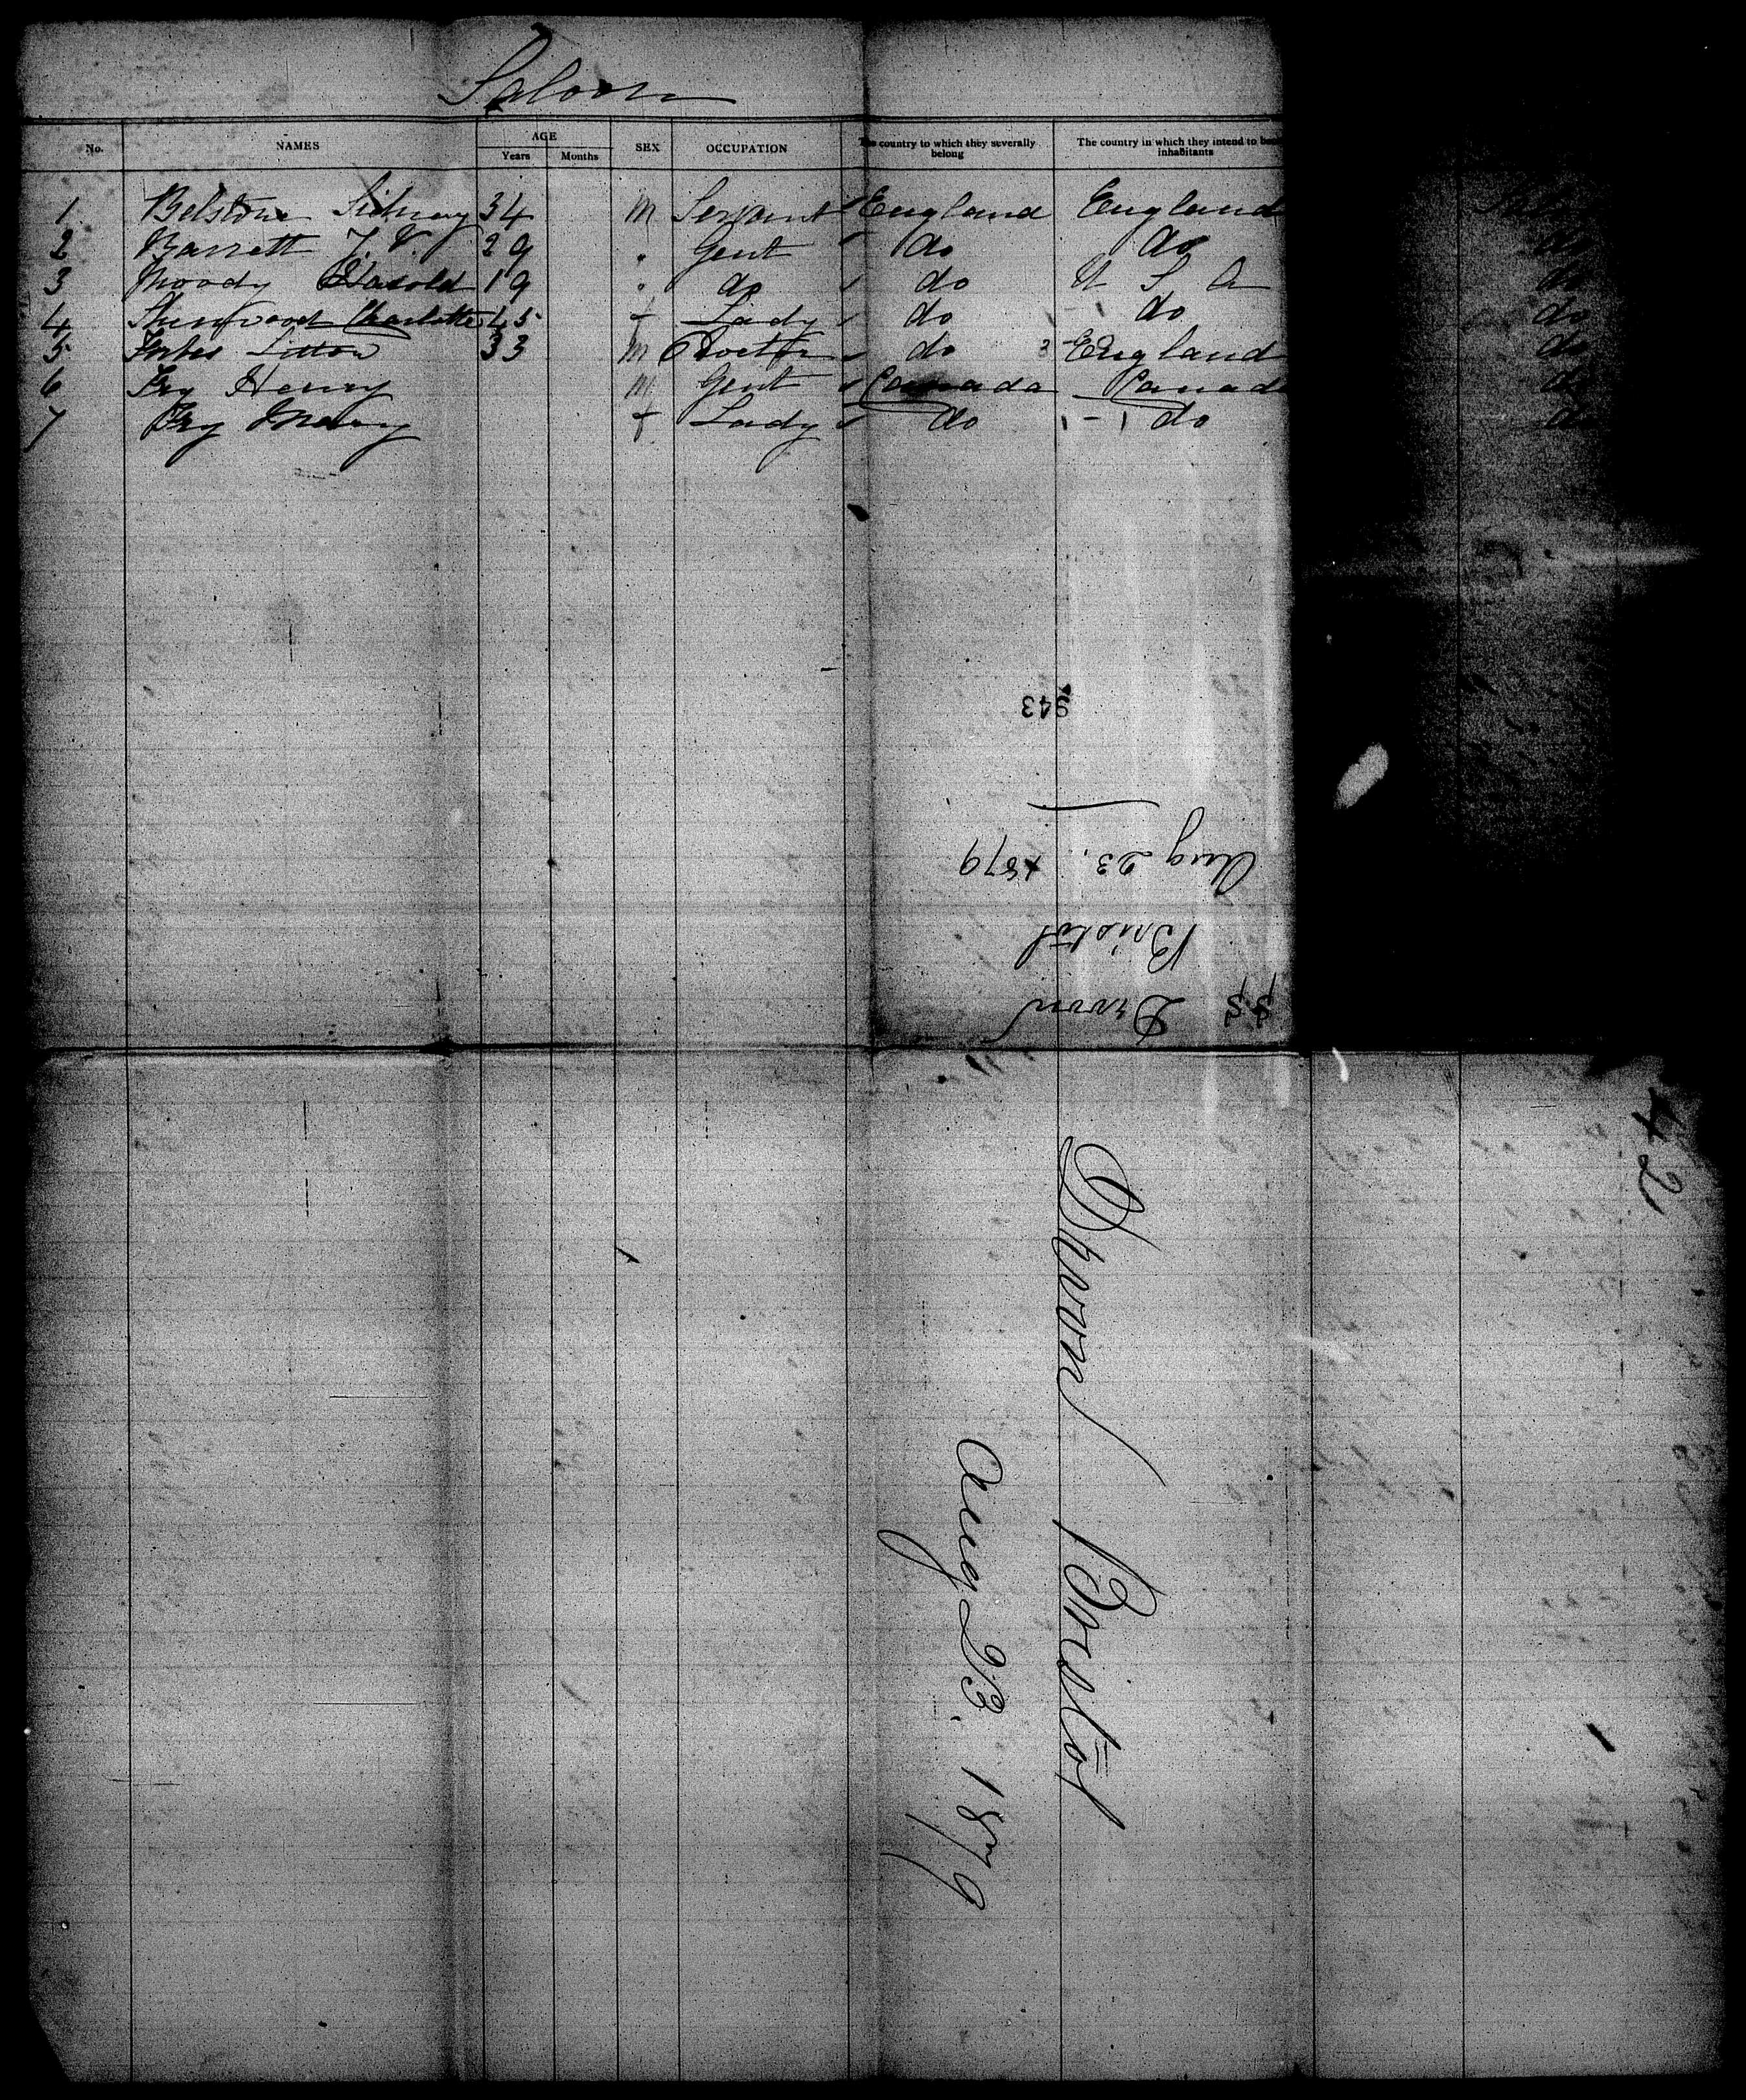 Saloon
No. NAMES AGE Years Months SEX OCCUPATION The country to which they severally belong The country in which they intend to inhabitants
1 Belstone Sidney 34 m Servant England England Saloon
2 Barrett 29 " Gent do do do
3 Moody Harold 19 " do do U S A do
4 Charlotte 45 f Lady do do do
5 33 m Doctor do England do
6 Fry Henry m Gent Canada Canada do
7 Fry Mary f Lady do do do
943
Aug 23. 1879
Bristol
SS Devon
42
Devon Bristol
Aug 23. 1879